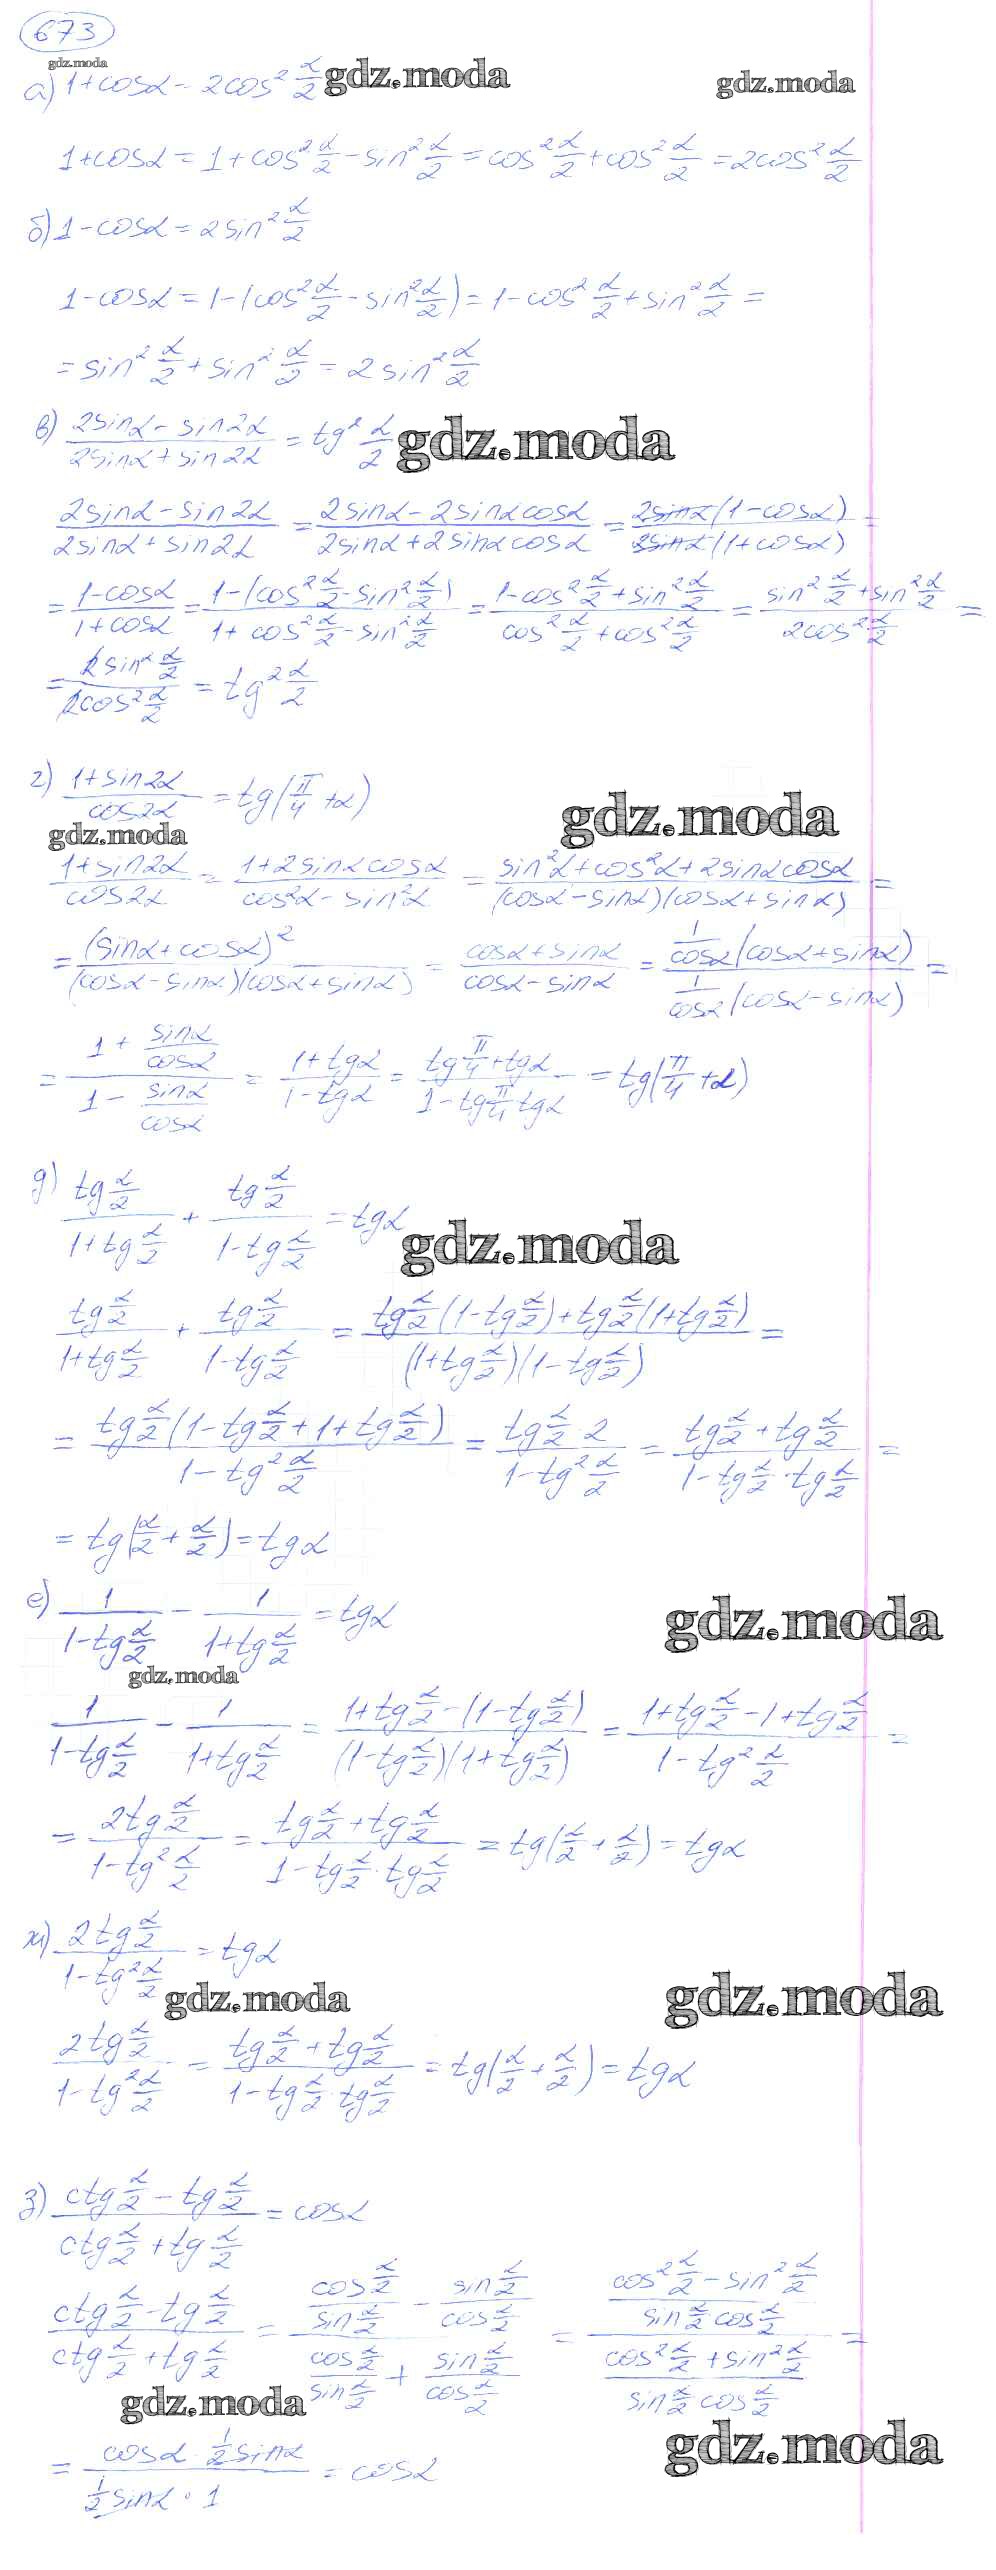 673
gdz.moda
а) 1+cosα = 2cos² α/2 gdz.moda gdz.moda
1+cosα = 1+cos² α/2 - sin² α/2 = cos² α/2 + cos² α/2 = 2cos² α/2
б) 1-cosα = 2sin² α/2
1-cosα = 1-(cos² α/2 - sin² α/2) = 1-cos² α/2 + sin² α/2 =
= sin² α/2 + sin² α/2 = 2sin² α/2
в) (2sinα - sin2α)/(2sinα + sin2α) = tg² α/2 gdz.moda
(2sinα - sin2α)/(2sinα + sin2α) = (2sinα - 2sinα cosα)/(2sinα + 2sinα cosα) = (2sinα(1-cosα))/(2sinα(1+cosα)) =
= (1-cosα)/(1+cosα) = (1-(cos² α/2 - sin² α/2))/(1+cos² α/2 - sin² α/2) = (1-cos² α/2 + sin² α/2)/(cos² α/2 + cos² α/2) = (sin² α/2 + sin² α/2)/(2cos² α/2) =
= (2sin² α/2)/(2cos² α/2) = tg² α/2
г) (1+sin2α)/(cos2α) = tg(π/4 + α) gdz.moda
gdz.moda
(1+sin2α)/(cos2α) = (1+2sinα cosα)/(cos²α - sin²α) = (sin²α + cos²α + 2sinα cosα)/((cosα - sinα)(cosα + sinα)) =
= (sinα + cosα)²/((cosα - sinα)(cosα + sinα)) = (cosα + sinα)/(cosα - sinα) = (1/cosα (cosα + sinα))/(1/cosα (cosα - sinα)) =
= (1 + sinα/cosα)/(1 - sinα/cosα) = (1+tgα)/(1-tgα) = (tg π/4 + tgα)/(1-tg π/4 tgα) = tg(π/4 + α)
д) (tg α/2)/(1+tg α/2) + (tg α/2)/(1-tg α/2) = tgα gdz.moda
(tg α/2)/(1+tg α/2) + (tg α/2)/(1-tg α/2) = (tg α/2 (1-tg α/2) + tg α/2 (1+tg α/2))/((1+tg α/2)(1-tg α/2)) =
= (tg α/2 (1-tg α/2 + 1 + tg α/2))/(1-tg² α/2) = (tg α/2 2)/(1-tg² α/2) = (tg α/2 + tg α/2)/(1-tg α/2 · tg α/2) =
= tg(α/2 + α/2) = tgα
е) 1/(1-tg α/2) - 1/(1+tg α/2) = tgα gdz.moda
gdz.moda
1/(1-tg α/2) - 1/(1+tg α/2) = (1+tg α/2 - (1-tg α/2))/((1-tg α/2)(1+tg α/2)) = (1+tg α/2 - 1 + tg α/2)/(1-tg² α/2) =
= (2tg α/2)/(1-tg² α/2) = (tg α/2 + tg α/2)/(1-tg α/2 · tg α/2) = tg(α/2 + α/2) = tgα
ж) (2tg α/2)/(1-tg² α/2) = tgα
gdz.moda gdz.moda
(2tg α/2)/(1-tg² α/2) = (tg α/2 + tg α/2)/(1-tg α/2 · tg α/2) = tg(α/2 + α/2) = tgα
з) (ctg α/2 - tg α/2)/(ctg α/2 + tg α/2) = cosα
(ctg α/2 - tg α/2)/(ctg α/2 + tg α/2) = ((cos α/2)/(sin α/2) - (sin α/2)/(cos α/2))/((cos α/2)/(sin α/2) + (sin α/2)/(cos α/2)) = ((cos² α/2 - sin² α/2)/(sin α/2 cos α/2))/((cos² α/2 + sin² α/2)/(sin α/2 cos α/2)) =
gdz.moda gdz.moda
= (cosα · 1/2 sinα)/(1/2 sinα · 1) = cosα